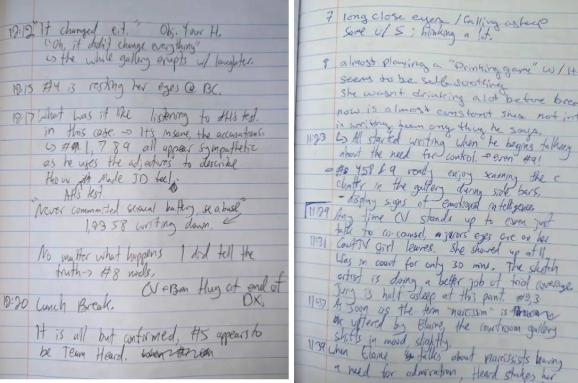 12:12 "It changed e.t." Obj. Your H.
"Oh, it didn't change everything"
↳ the whole gallery erupts w/ laughter.
12:15 #4 is resting her eyes @ BC.
12:17 "What was it like listening to AH's test.
in this case → It's insane, the accusations.
↳ #1, 7 8 9 all appear sympathetic
as he uses the adjectives to describe
how made JD feel.
AH's test
"Never committed sexual battery, se abuse"
1,2 3 5 8 writing down.
No matter what happens I did tell the
truth → #8 nods.
CV + Ben Hug at end of
DX.
12:20 Lunch Break.
It is all but confirmed, #5 appears to
be Team Heard.
7 long close eyes / falling asleep
Same w/ 5; blinking a lot.
8 almost playing a "Drinking game" w/
seems to be
She wasn't drinking a lot before
now is almost constant
in writing down any thing he says.
11:23 ↳ All started writing when he begins talking
about the need for control. → even #9!
#s 4 5 8 & 9 really enjoy scanning the
in the gallery during side bars.
- display signs of emotional intelligence
11:29 Any time CV stands up to even just
talk to co-counsel, jurors eyes are on her
11:31 CourtTV girl leaves. She showed up at 11
Was in court for only 30 mins. The sketch
artist is doing a better job of trial coverage
Jury is half asleep at this point. #9,3
As soon as the term "narcissism" is
uttered by Elaine, the courtroom gallery
shifts in mood slightly.
11:39 When Elaine talks about narcissists having
a need for admiration, Heard shakes her